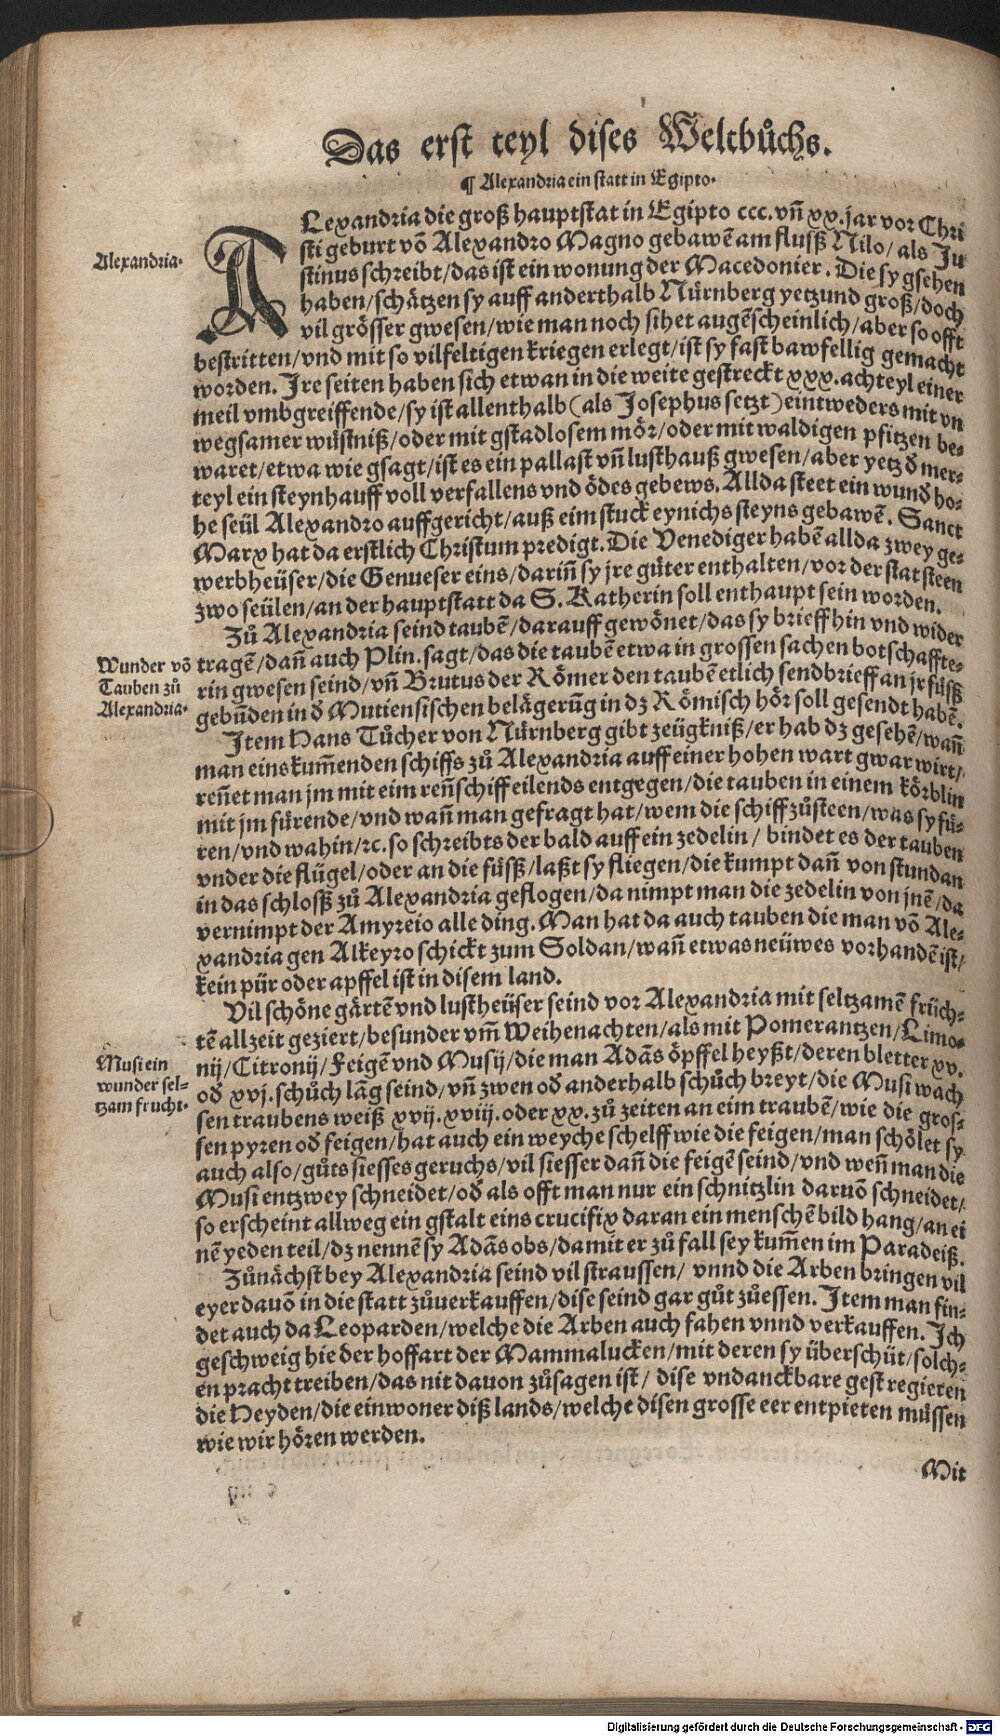 Das erst teyl dises Weltbůchs.
¶ Alexandria ein statt in Egipto.
Alexandria.
ALexandria die groß hauptstat in Egipto ccc. vñ xx. jar vor Chri
sti geburt võ Alexandro Magno gebawẽ am flusß Nilo/ als Ju
stinus schreibt/ das ist ein wonung der Macedonier. Die sy gsehen
haben/ schätzen sy auff anderthalb Nürnberg yetzund groß/ doch
vil grösser gwesen/ wie man noch sihet augẽscheinlich/ aber so offt
bestritten/ vnd mit so vilfeltigen kriegen erlegt/ ist sy fast bawfellig gemacht
worden. Ire seiten haben sich etwan in die weite gestreckt xxx. achteyl einer
meil vmbgreiffende/ sy ist allenthalb (als Josephus setzt) eintweders mit vn
wegsamer wüstniß/ oder mit gstadlosem mör/ oder mit waldigen pfitzen be-
waret/ etwa wie gsagt/ ist es ein pallast vñ lusthauß gwesen/ aber yetz ď mer-
teyl ein steynhauff voll verfallens vnd ödes gebews. Allda steet ein wund ho-
he seül Alexandro auffgericht/ auß eim stuck eynichs steyns gebawẽ. Sanct
Marx hat da erstlich Christum predigt. Die Venediger habẽ allda zwey ge-
werbheüser/ die Genueser eins/ dariñ sy jre güter enthalten/ vor der stat steen
zwo seülen/ an der hauptstatt da S. Katherin soll enthaupt sein worden.
Zů Alexandria seind taubẽ/ darauff gewönet/ das sy brieff hin vnd wider
Wunder võ
Tauben zů
Alexandria.
tragẽ/ dañ auch Plin. sagt/ das die taubẽ etwa in grossen sachen botschaffte-
rin gwesen seind/ vñ Brutus der Römer den taubẽ etlich sendbrieff an jr füsß
gebũden in ď Mutiensischen belägerũg in dz Römisch hör soll gesendt habẽ.
Item Hans Tůcher von Nürnberg gibt zeügkniß/ er hab dz gesehẽ/ wañ
man eins kum̃enden schiffs zů Alexandria auff einer hohen wart gwar wirt/
reñet man jm mit eim reñschiff eilends entgegen/ die tauben in einem körblin
mit jm fürende/ vnd wañ man gefragt hat/ wem die schiff zůsteen/ was sy fü-
ren/ vnd wahin/ ꝛc. so schreibts der bald auff ein zedelin/ bindet es der tauben
vnder die flügel/ oder an die füsß/ laßt sy fliegen/ die kumpt dañ von stundan
in das schlosß zů Alexandria geflogen/ da nimpt man die zedelin von jnẽ/ da
vernimpt der Amyreio alle ding. Man hat da auch tauben die man võ Ale-
xandria gen Alkeyro schickt zum Soldan/ wañ etwas neüwes vorhandẽ ist/
kein pür oder apffel ist in disem land.
Vil schöne gärtẽ vnd lustheüser seind vor Alexandria mit seltzamẽ früch-
tẽ allzeit geziert/ besunder vm̃ Weihenachten/ als mit Pomerantzen/ Limo-
Musi ein
wunder sel-
tzam frucht.
nij/ Citronij/ Feigẽ vnd Musij/ die man Adãs öpffel heyßt/ deren bletter xv.
oď xvj. schůch lãg seind/ vñ zwen oď anderhalb schůch breyt/ die Musi wach
sen traubens weiß xvij. xviij. oder xx. zů zeiten an eim traubẽ/ wie die gros-
sen pyren oď feigen/ hat auch ein weyche schelff wie die feigen/ man schölet sy
auch also/ gůts siesses geruchs/ vil siesser dañ die feigẽ seind/ vnd weñ man die
Musi entzwey schneidet/ oď als offt man nur ein schnitzlin daruõ schneidet/
so erscheint allweg ein gstalt eins crucifix daran ein menschẽ bild hang/ an ei
nẽ yeden teil/ dz nennẽ sy Adãs obs/ damit er zů fall sey kum̃en im Paradeiß.
Zůnächst bey Alexandria seind vil straussen/ vnnd die Arben bringen vil
eyer dauõ in die statt zůuerkauffen/ dise seind gar gůt zůessen. Item man fin-
det auch da Leoparden/ welche die Arben auch fahen vnnd verkauffen. Ich
geschweig hie der hoffart der Mammalucken/ mit deren sy überschüt/ solch-
en pracht treiben/ das nit dauon zůsagen ist/ dise vndanckbare gest regieren
die Heyden/ die einwoner diß lands/ welche disen grosse eer entpieten müssen
wie wir hören werden.
Mit
Digitalisierung gefördert durch die Deutsche Forschungsgemeinschaft - DFG